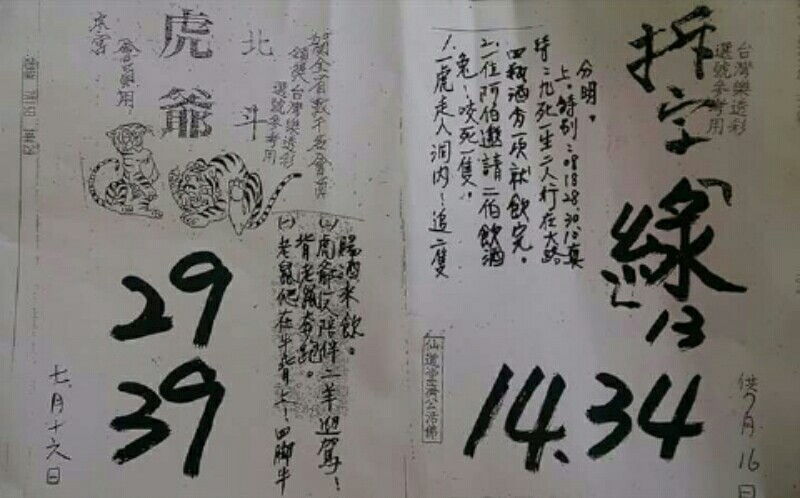 台灣樂透彩
選號參考用
拆字
「綠」
13
14.34
供7月16日
分明。
上。特別:08 18 28.30.10真
特:九死一生二人行在大路
四瓶酒有一項就飲完。
2.一位阿伯邀請二伯飲酒
兔~咬死一隻。
1.一虎走入洞內~追二隻
仙道堂濟公活佛
賀全省數千名會員
領獎台灣樂透彩
選號參考用
北斗
虎爺
會員專用
本宮
賜酒來飲。
(二)虎爺一又陪伴二羊迎駕~
背老鼠夯跑。
(一)老鼠爬在牛背上~四腳牛
29
39
七月十六日